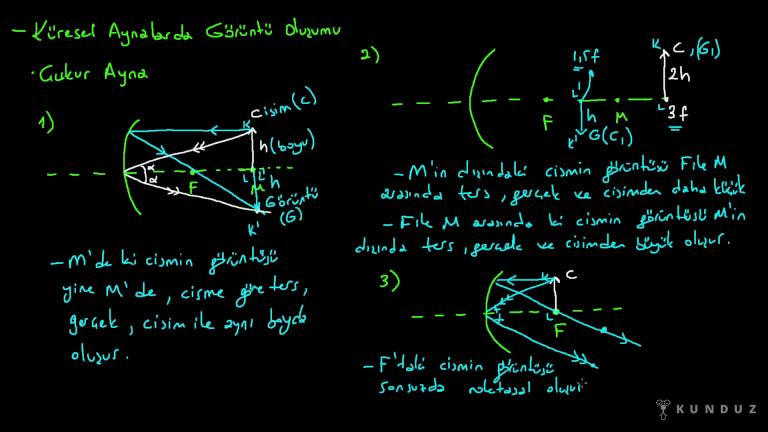 - Küresel Aynalarda Görüntü Oluşumu
• Çukur Ayna
1)
Cisim (C)
K
h (boyu)
α
α
F
L L'
M
h
Görüntü
(G)
K'
- M'de ki cismin görüntüsü
yine M'de, cisme göre ters,
gerçek, cisim ile aynı boyda
oluşur.
2)
1,5f
K C, (G₁)
2h
L'
L
F
h
M
3f
K'
G(C₁)
- M'in dışındaki cismin görüntüsü F ile M
arasında ters, gerçek ve cisimden daha küçük
- F ile M arasında ki cismin görüntüsü M'in
dışında ters, gerçek ve cisimden büyük oluşur.
3)
K C
L
F
- F'daki cismin görüntüsü
sonsuzda noktasal oluşur
KUNDUZ